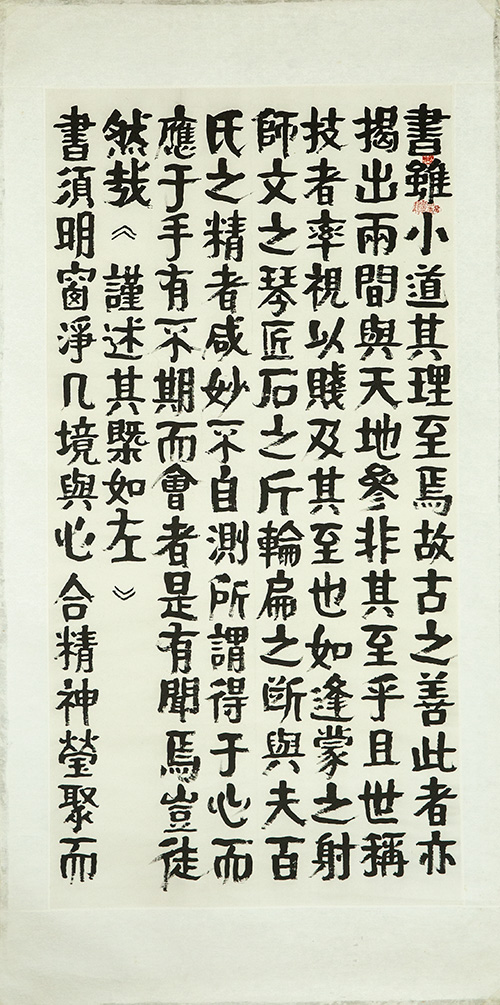 書雖小道其理至焉故古之善此者亦
揭出兩間與天地參非其至乎且世稱
技者率視以賤及其至也如逢蒙之射
師文之琴匠石之斤輪扁之斲與夫百
氏之精者咸妙不自測所謂得于心而
應于手有不期而會者是有聞焉豈徒
然哉《謹述其槩如左》
書須明窗淨几境與心合精神瑩聚而